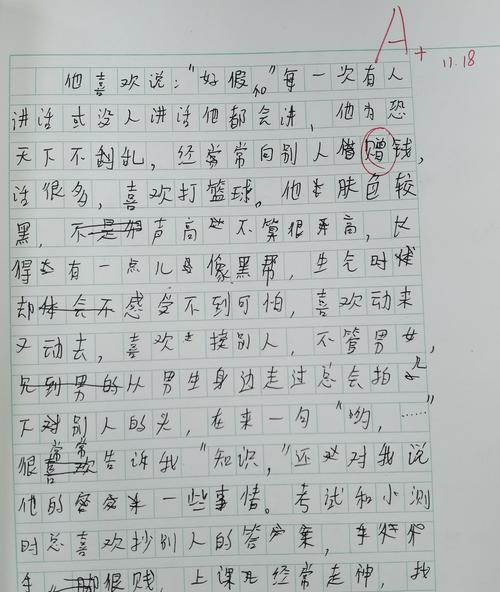 A+
11.18
他喜欢说:“好假”和每一次有人
讲话或没人讲话他都会讲,他为恐
天下不乱,经常常向别人借赠钱,
话很多,喜欢打篮球。他皮肤色较
黑,不是声高不算很高,长
得有一点儿像黑帮,生气时
却体会不感受不到可怕,喜欢动来
又动去,喜欢接别人,不管男女,
见到男的从男生身边走过总会拍几
下对别人的头,在来一句“哟,……”
很喜欢常常告诉我“知识,”还对我说
他的一些事情。考试和小测
时总喜欢抄别人的答案,手
手脚很贱,上课经常走神,找